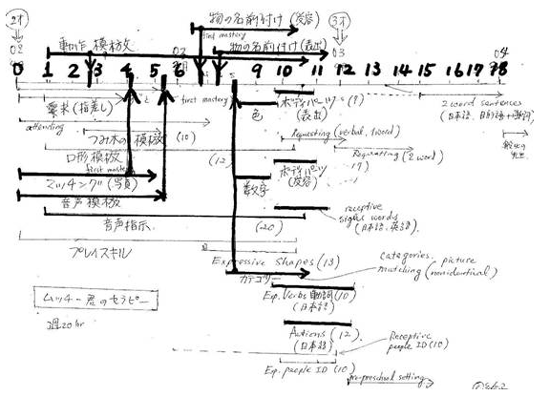 2才
物の名前付け (受容)
3才
動作模倣
first mastery
物の名前付け (表出)
02
03
04
0 1 2 3 4 5 6 9 10 11 12 13 14 15 16 17 18
要求 (指差し)
first mastery
ボディパーツ (9)
(表出)
2 word sentences
色
attending
つみ木の模倣 (10)
Requesting (verbal, 1 word)
口形模倣
(12)
Requesting (2 word)
first mastery
マッチング (写真)
ボディパーツ
(受容)
17)
数字
音声模倣
receptive
sight words
(日本語、英語)
音声指示
(20)
プレイスキル
Expressive Shapes (13)
categories, picture
matching (nonidentical)
カテゴリー
Exp. Verbs 動詞 (10)
(日本語)
ムッチー君のセラピー
週20hr
Actions (12)
(日本語)
Receptive
people ID (10)
Exp. people ID (10)
pre-preschool setting